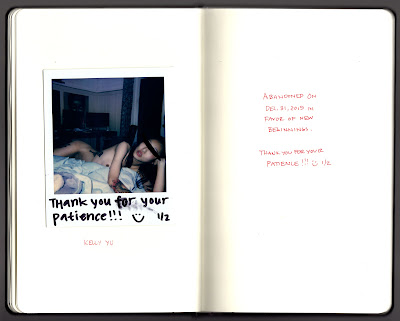 THANK YOU for your
patience!!! ☺ 1/2
KELLY YU
ABANDONED ON
DEC. 31, 2015 IN
FAVOR OF NEW
BEGINNINGS.
THANK YOU FOR YOUR
PATIENCE!!! ☺ 1/2